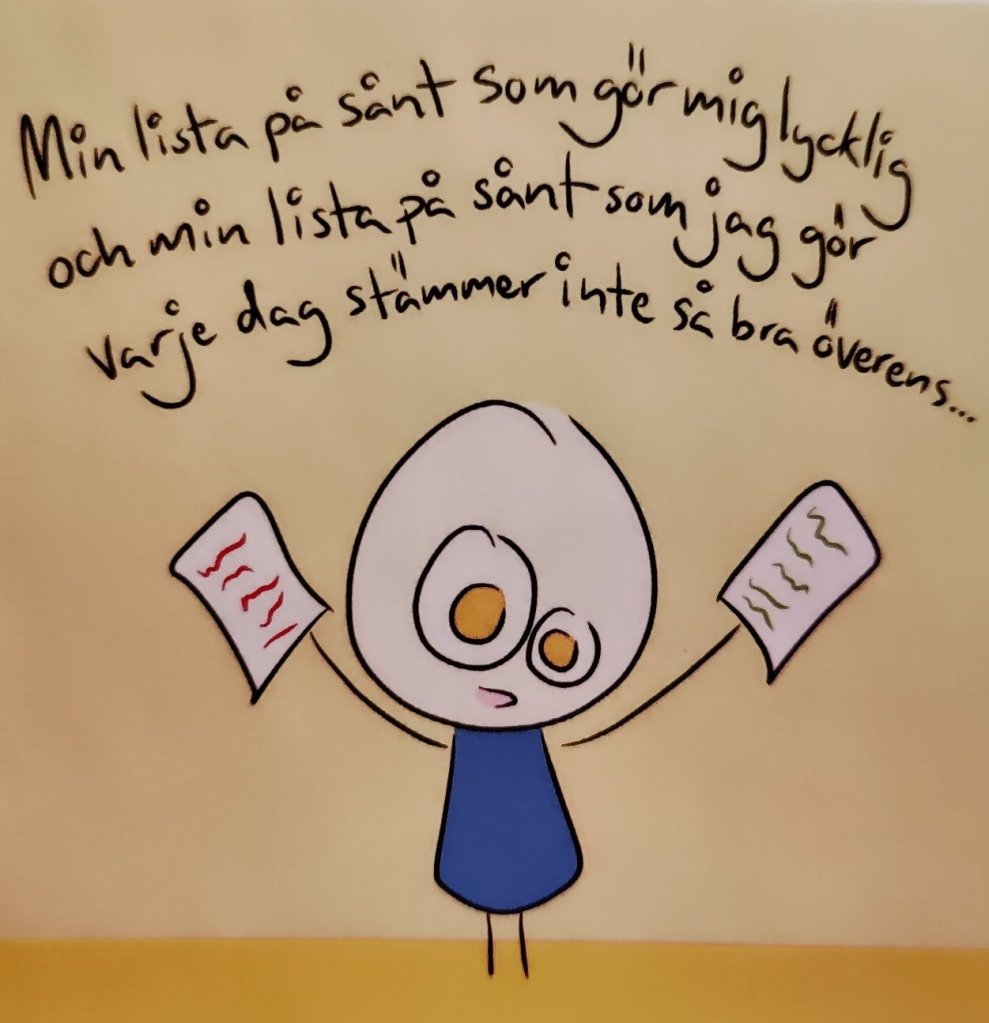 Min lista på sånt som gör mig lycklig
och min lista på sånt som jag gör
varje dag stämmer inte så bra överens...